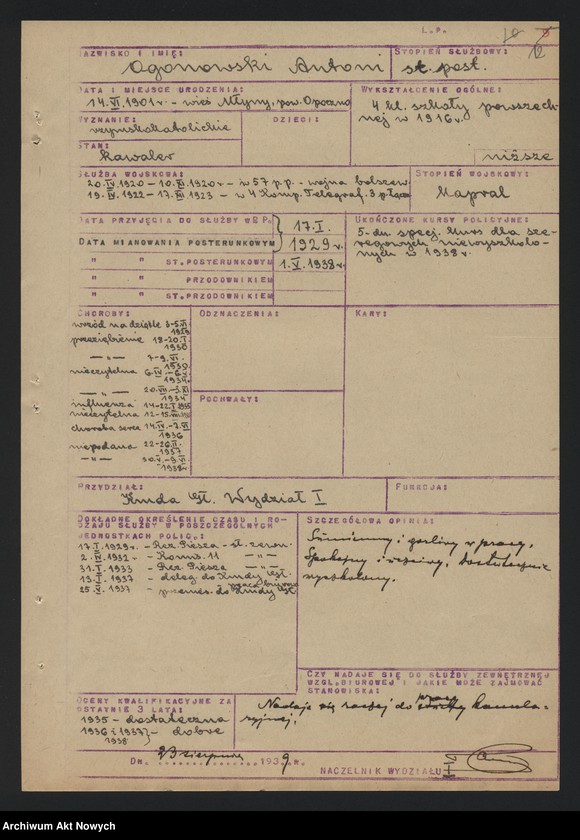 L.P.
NAZWISKO I IMIĘ:
Ogonowski Antoni
STOPIEŃ SŁUŻBOWY:
st. post.
DATA I MIEJSCE URODZENIA:
14.VI.1901r. - wieś Młyny, pow. Opoczno
WYKSZTAŁCENIE OGÓLNE:
4 kl. szkoły powszech-
nej w 1916r.
WYZNANIE:
rzymskokatolickie
DZIECI:
STAN:
kawaler
niższe
SŁUŻBA WOJSKOWA:
20.IV.1920 - 10.XI.1920r. - w 57 p.p. - wojna bolszew.
19.IV.1922 - 17.XII.1923 - w 4 Komp. Telegraf. 3 p.łącz
STOPIEŃ WOJSKOWY:
Kapral
DATA PRZYJĘCIA DO SŁUŻBY W P.P.
17.I.
DATA MIANOWANIA POSTERUNKOWYM
1929r.
" " ST.POSTERUNKOWYM
1.V.1938r.
" " PRZODOWNIKIEM
" " ST.PRZODOWNIKIEM
UKOŃCZONE KURSY POLICYJNE:
5-dn. specj. kurs dla sze-
regowych niewyszkolo-
nych w 1938r.
CHOROBY:
wrzód na dziąśle 3-5.VI
1929
przeziębienie 18-20.I.
1930
-"- 7-9.VI.
1930
nieczytelna 6.IV.-6.V.
1934r.
-"-
1934
influenza 14-22.I.1935
nieczytelna 12-15.
choroba serca 14.IV.-7.VI
1936
niepodana 22-26.II.
1937
-"- 30.V.-9.VI
1938r
ODZNACZENIA:
POCHWAŁY:
KARY:
PRZYDZIAŁ:
Kmda st. Wydział I
FUNKCJA:
DOKŁADNE OKREŚLENIE CZASU I RO-
DZAJU SŁUŻBY W POSZCZEGÓLNYCH
JEDNOSTKACH POLIC.:
17.I.1929r. - Rez. Piesza - sł. zewn.
2.IV.1932r - Komis. 11 -"-
31.I.1933 - Rez. Piesza -"-
13.I.1937 - deleg. do Kmdy st.
praca biurowa
25.V.1937 - przenies. do Kmdy st
SZCZEGÓŁOWA OPINIA:
Sumienny i gorliwy w pracy.
Spokojny i rozważny. Dostatecznie
wyszkolony.
CZY NADAJE SIĘ DO SŁUŻBY ZEWNĘTRZNEJ
WZGL.BIUROWEJ I JAKIE MOŻE ZAJMOWAĆ
STANOWISKA:
Nadaje się raczej do pracy kancela-
ryjnej.
OCENY KWALIFIKACYJNE ZA
OSTATNIE 3 LATA:
1935 - dostateczna
1936 i 1937 - dobre
1938
Dn. 23 sierpnia 1939r.
NACZELNIK WYDZIAŁU I-I
Archiwum Akt Nowych